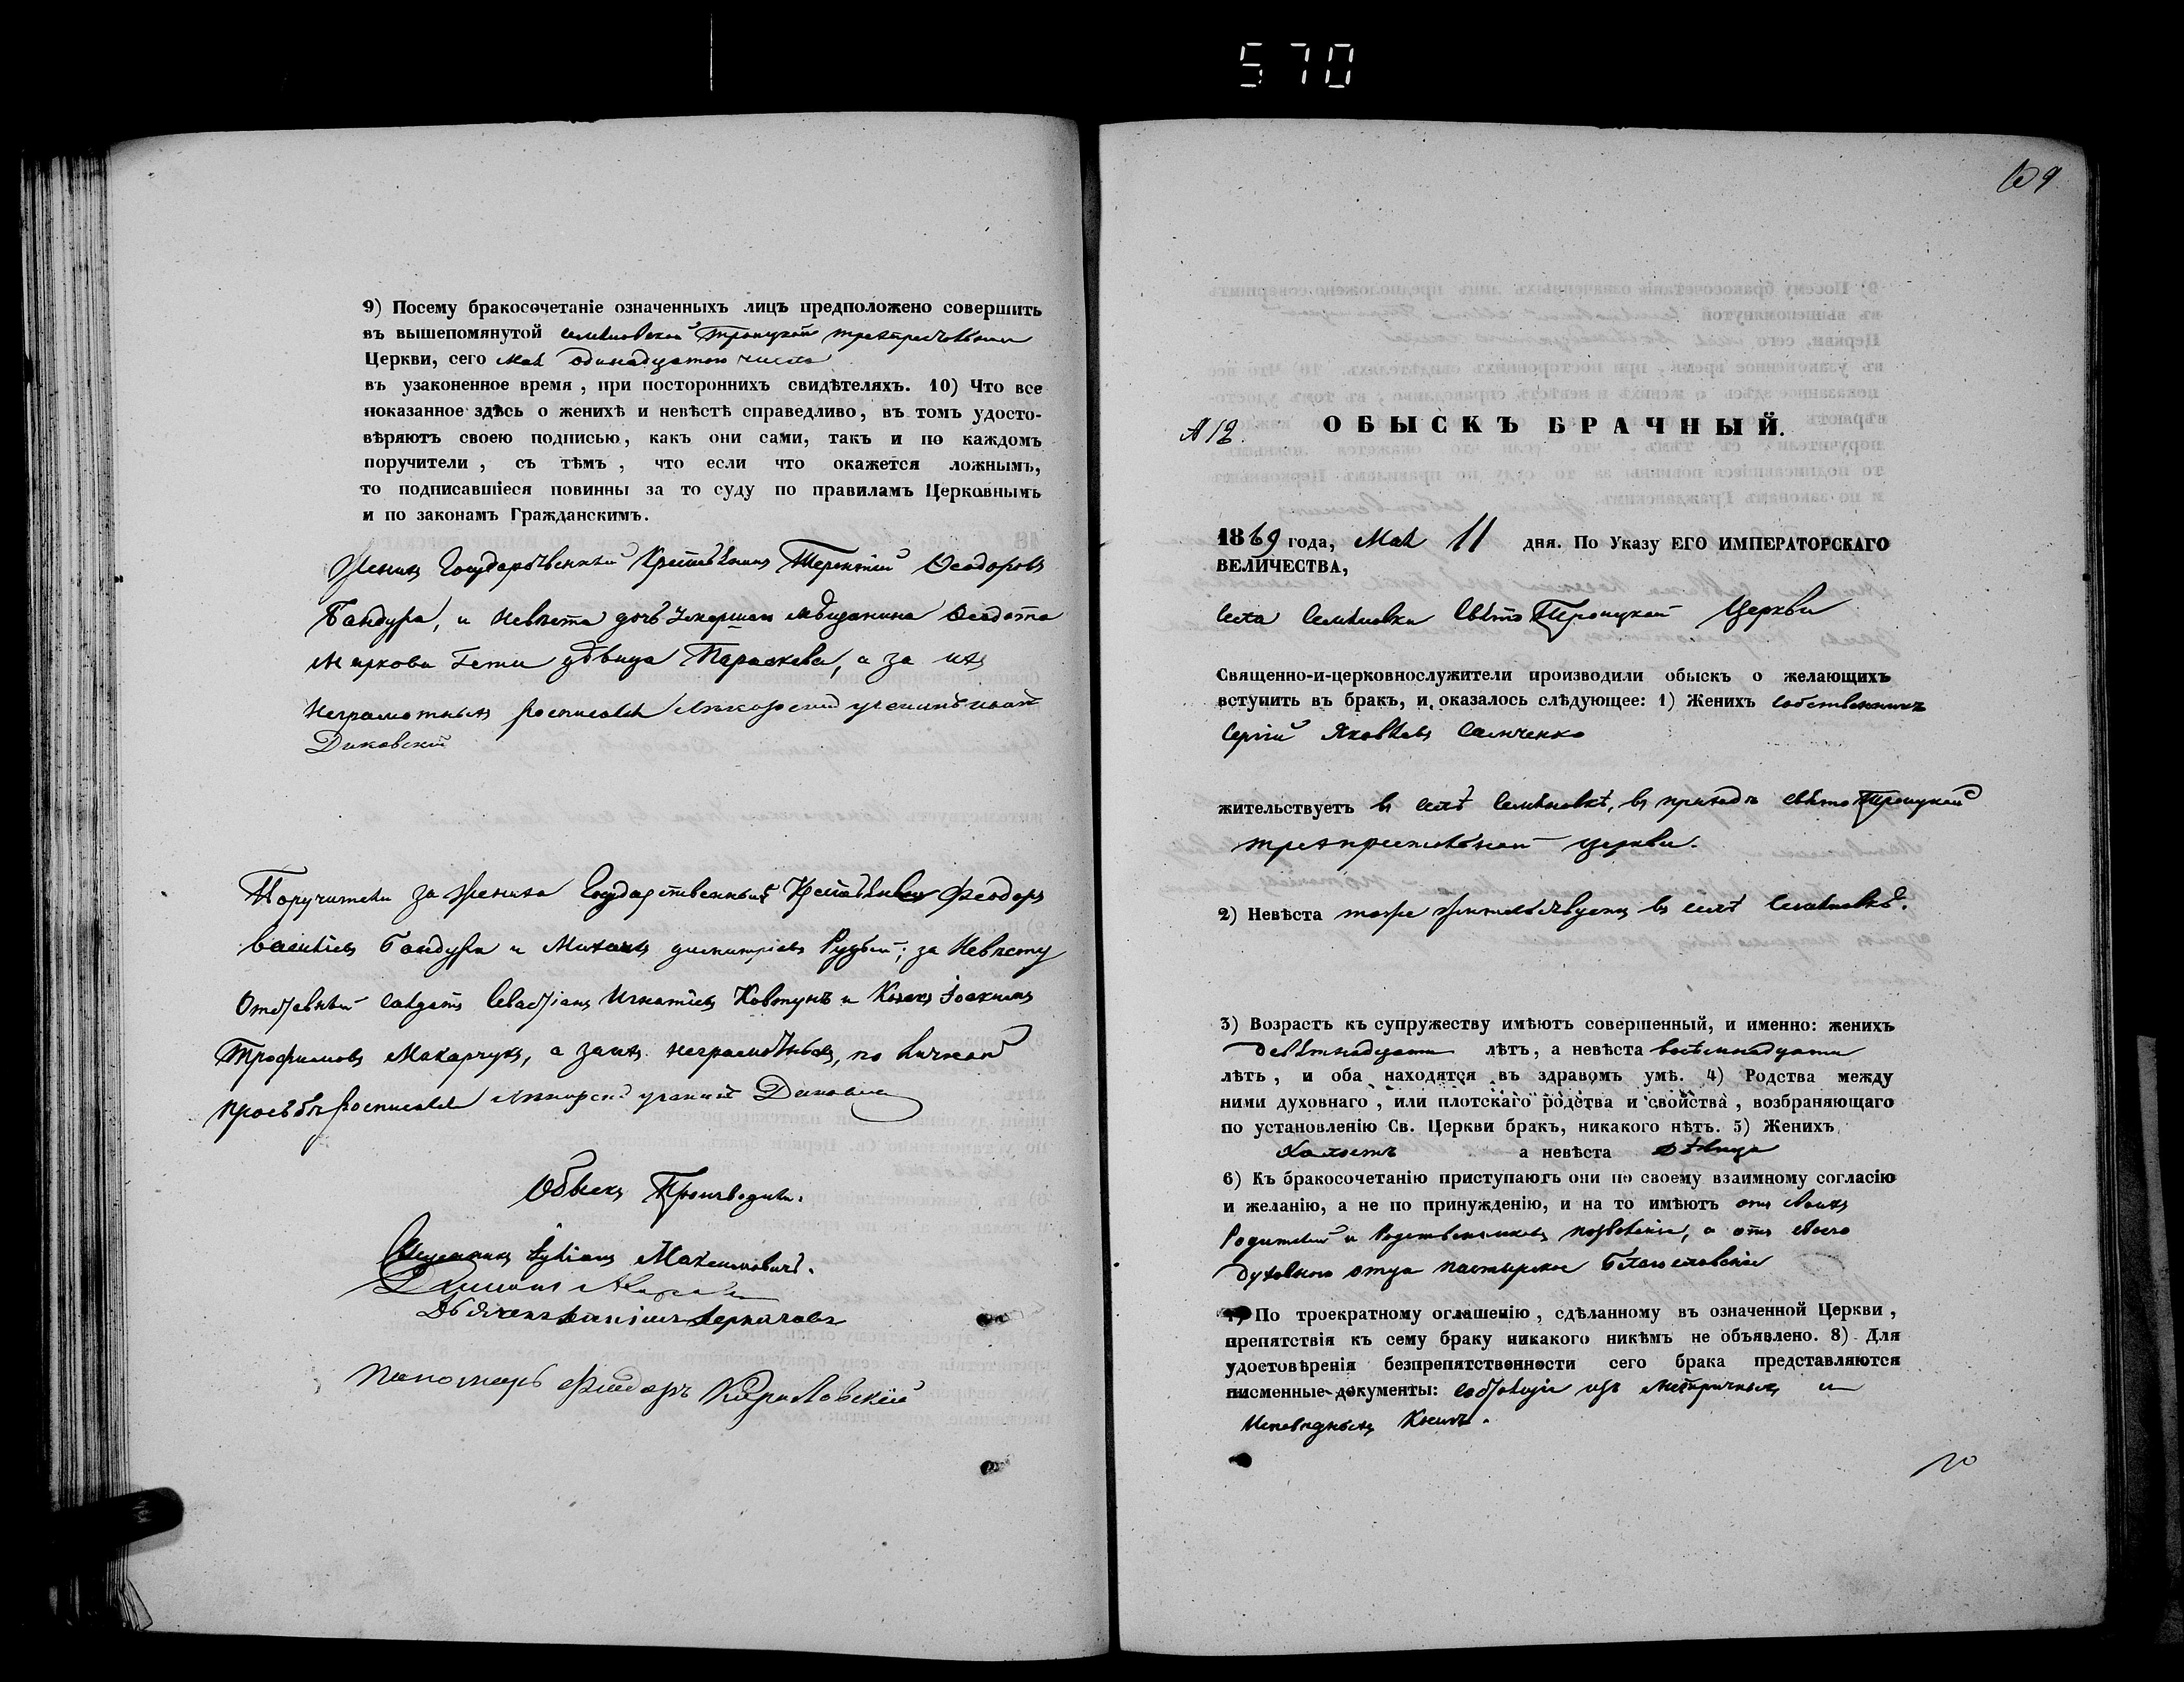 570
9) Посему бракосочетаніе означенныхъ лицъ предположено совершить
въ вышепомянутой Семіоновской Троицкой трехпрестольной
Церкви, сего Мая одинадцатого числа
въ узаконенное время, при постороннихъ свидѣтеляхъ. 10) Что все
показанное здѣсь о женихѣ и невѣстѣ справедливо, въ томъ удосто-
вѣряютъ своею подписью, какъ они сами, такъ и по каждомъ
поручители, съ тѣмъ, что если что окажется ложнымъ,
то подписавшіеся повинны за то суду по правиламъ Церковнымъ
и по законамъ Гражданскимъ.
Женихъ Государственный Крестьянинъ Терентій Ѳеодоровъ
Бандура, и Невѣста дочь умершаго мѣщанина Ѳеодота
Маркова дѣвица Параскева, а за нихъ
Неграмотныхъ росписался
Диковскій
Поручители за Жениха Государственный Крестьянинъ Феодоръ
Василіевъ Бандура и Михаилъ Димитріевъ Рудый; за Невѣсту
Отставный Солдатъ Севастіанъ Игнатіевъ Ковтунъ и Козакъ Іоакимъ
Трофимовъ Макарчукъ, а за нихъ неграмотныхъ, по личной
прозьбѣ росписался
Обыскъ Производили:
Священникъ Іуліанъ Максимовичъ.
Пономарь Феодоръ
109
А 12.
ОБЫСКЪ БРАЧНЫЙ.
1869 года, Мая 11 дня. По Указу ЕГО ИМПЕРАТОРСКАГО
ВЕЛИЧЕСТВА,
Села Семіоновки Свято Троицкой Церкви
Священно-и-церковнослужители производили обыскъ о желающихъ
вступить въ бракъ, и оказалось слѣдующее: 1) Женихъ собственникъ
Сергій Яковлевъ Самченко
жительствуетъ въ селѣ Семіоновкѣ, въ приходѣ Свято Троицкой
трехпрестольной церкви.
2) Невѣста тоже жительствуетъ въ селѣ Семіоновкѣ.
3) Возрастъ къ супружеству имѣютъ совершенный, и именно: женихъ
девятнадцати лѣтъ, а невѣста восемнадцати
лѣтъ, и оба находятся въ здравомъ умѣ. 4) Родства между
ними духовнаго, или плотскаго родства и свойства, возбраняющаго
по установленію Св. Церкви бракъ, никакого нѣтъ. 5) Женихъ
Холостъ а невѣста дѣвица
6) Къ бракосочетанію приступаютъ они по своему взаимному согласію
и желанію, а не по принужденію, и на то имѣютъ отъ своихъ
Родителей и Родственниковъ позволеніе, а отъ своего
духовного отца пастырское Благословеніе
7) По троекратному оглашенію, сдѣланному въ означенной Церкви,
препятствія къ сему браку никакого никѣмъ не объявлено. 8) Для
удостовѣренія безпрепятственности сего брака представляются
писменные документы: состоящіе изъ Метричныхъ и
Исповедныхъ Книгъ.